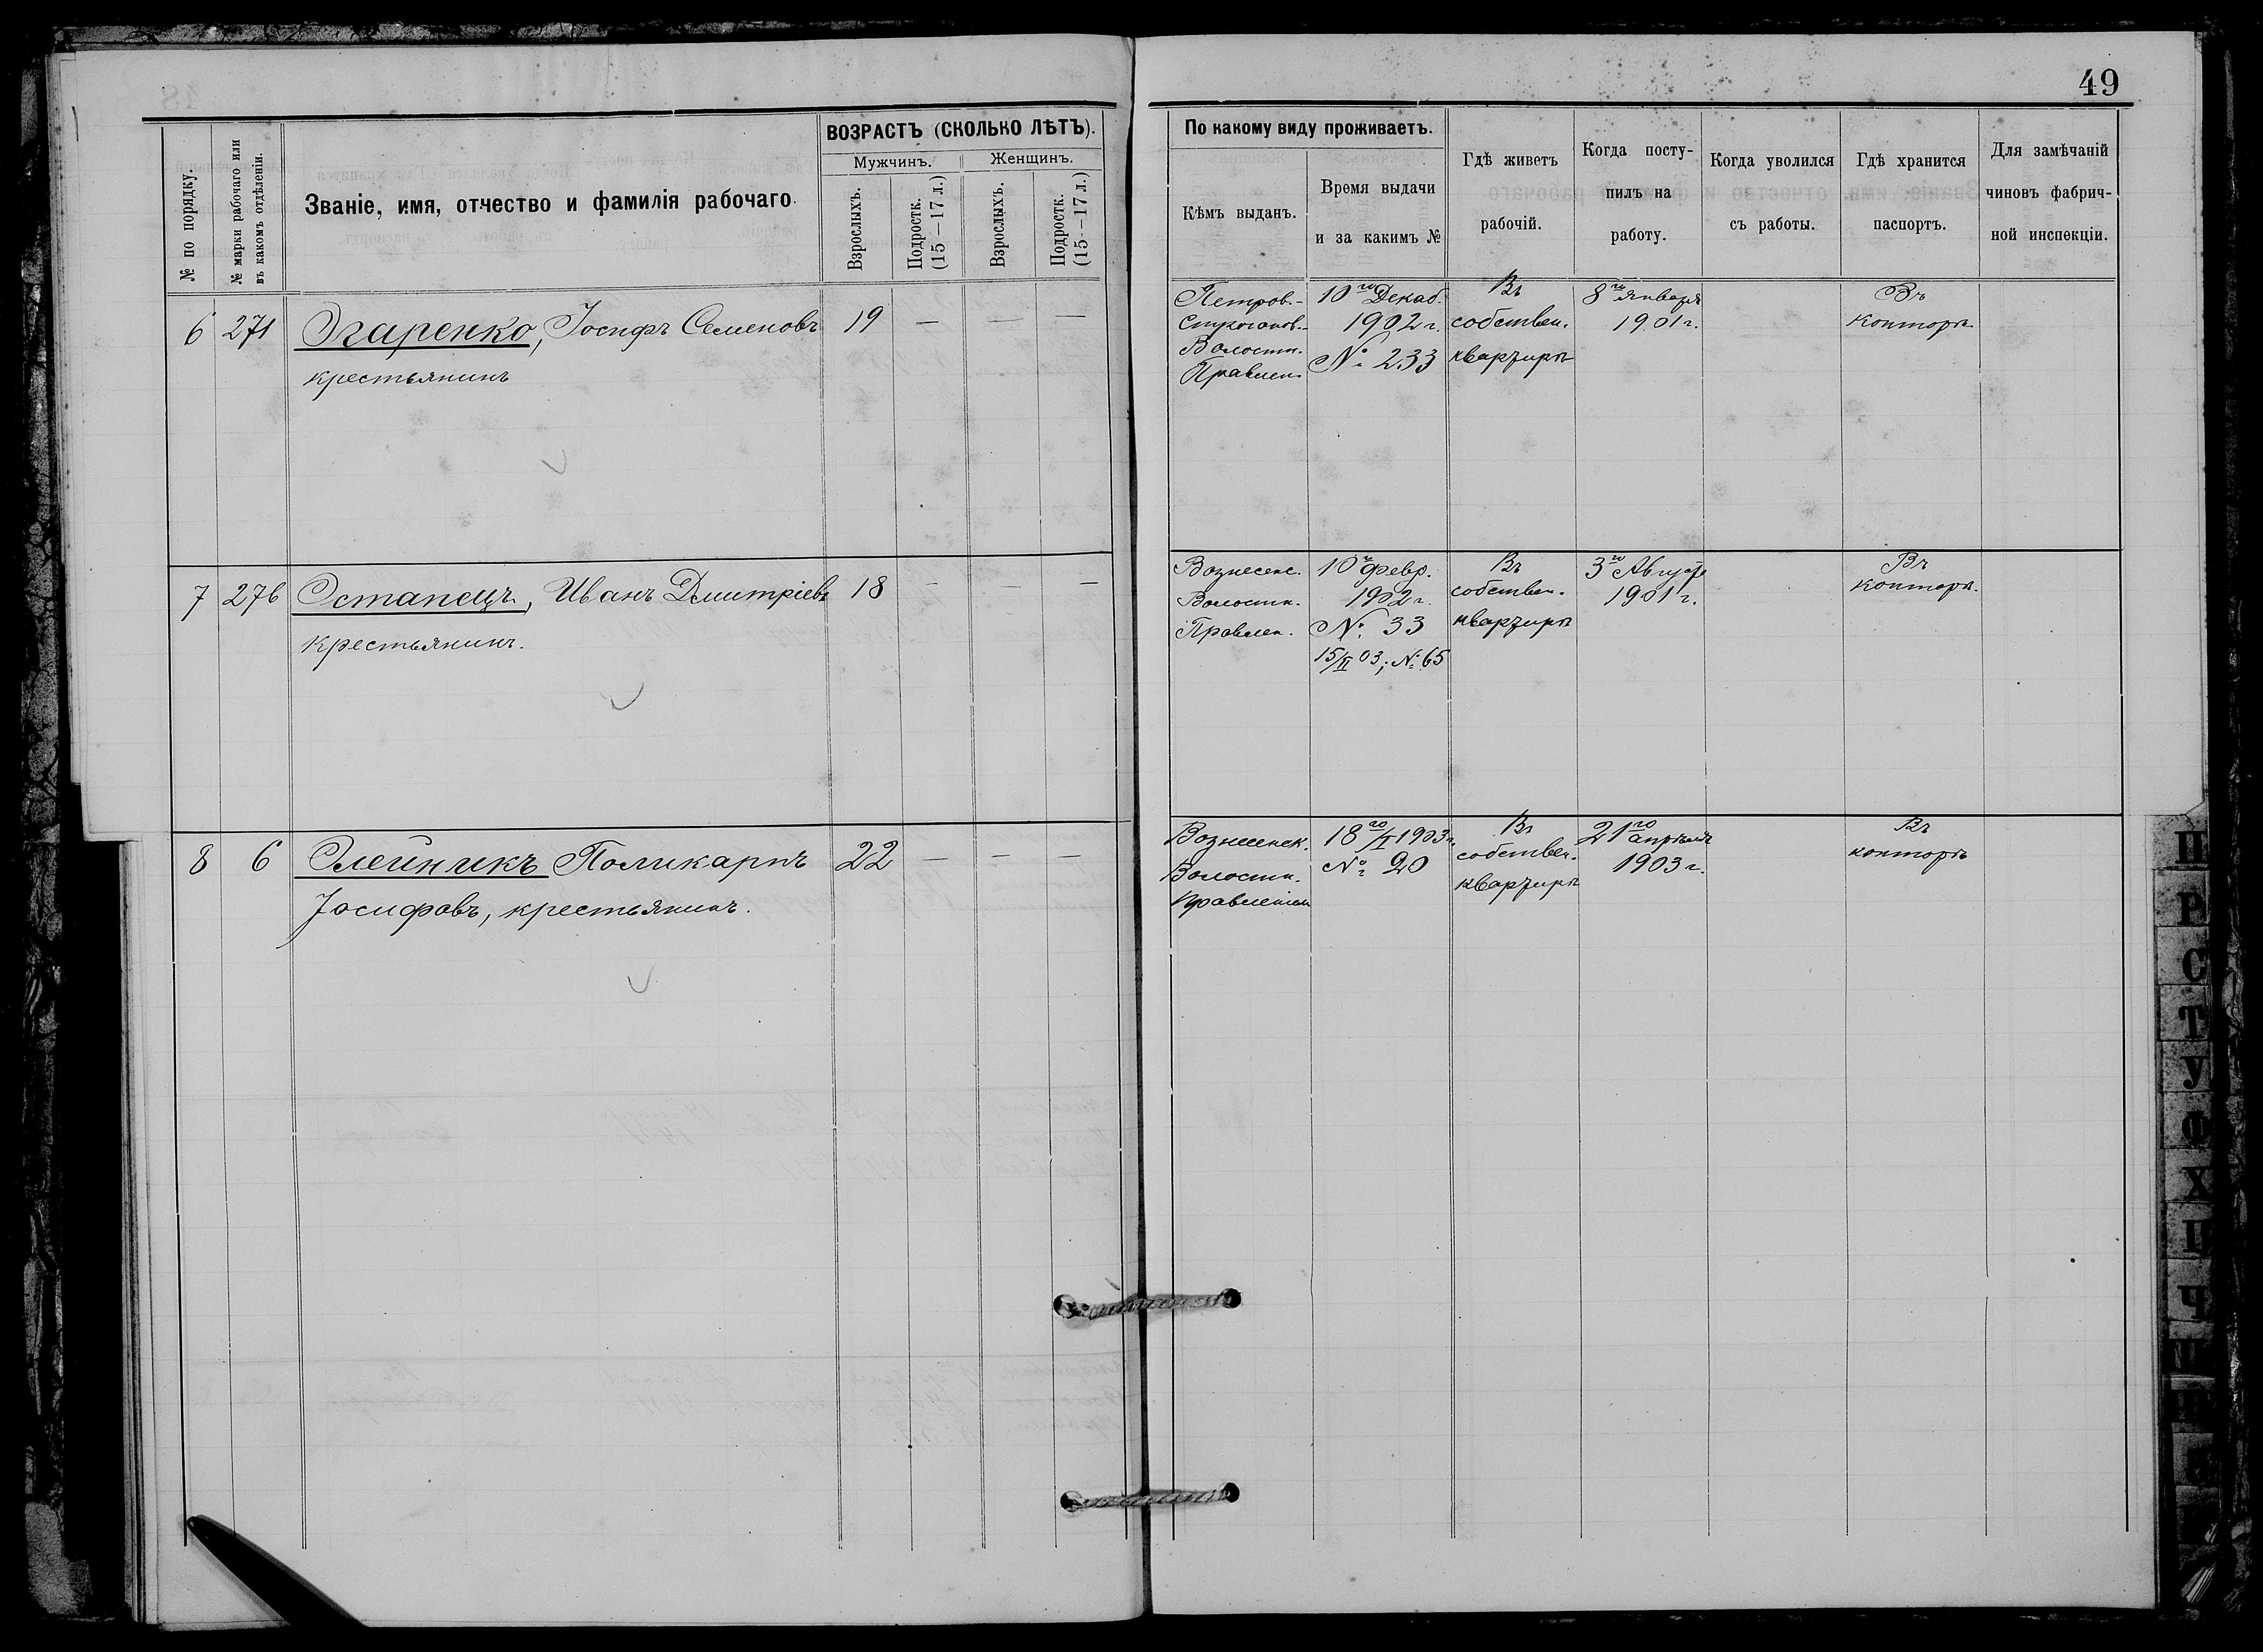 49
ВОЗРАСТЪ (СКОЛЬКО ЛѢТЪ).
№ по порядку.
№ марки рабочаго или
въ какомъ отдѣленіи.
Званіе, имя, отчество и фамилія рабочаго.
Мужчинъ.
Женщинъ.
Взрослыхъ.
Подростк.
(15—17 л.)
Взрослыхъ.
Подростк.
(15—17 л.)
По какому виду проживаетъ.
Кѣмъ выданъ.
Время выдачи
и за какимъ №
Гдѣ живетъ
рабочій.
Когда посту-
пилъ на
работу.
Когда уволился
съ работы.
Гдѣ хранится
паспортъ.
Для замѣчаній
чиновъ фабрич-
ной инспекціи.
6 271 Огаренко, Іосифъ Семеновъ 19 — — —
крестьянинъ
Петров.-
Строганов.-
Волостн.
Правлен.
10го Декаб.
1902 г.
№ 233
Въ
собствен.
квартирѣ
8го января
1901 г.
Въ
конторѣ.
7 276 Остапецъ, Иванъ Дмитріевъ 18 — — —
крестьянинъ.
Вознесенс.
Волостн.
Правлен.
10го февр.
1902 г.
№ 33
15/II 03; № 65
Въ
собствен.
квартирѣ
3го Августа
1901 г.
Въ
конторѣ.
8 6 Олейникъ Поликарпъ 22 — — —
Іосифовъ, крестьянинъ.
Вознесенск.
Волостн.
Правленіем
18го/II 1903 г.
№ 20
Въ
собствен.
квартирѣ
21го апрѣля
1903 г.
Въ
конторѣ
П
Р
С
Т
У
Ф
Х
Ц
Ч